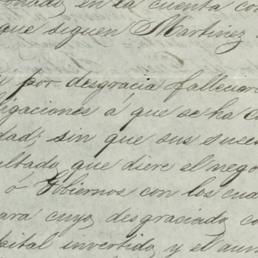 ionado, en la cuenta con
que siguen Martinez
i por desgracia fallecier
ligaciones a que se ha c
dad; sin que sus suces
ultado que diere el nego
o Gobiernos con los cua
ara cuyo desgraciado ca
pital invertido y el aum